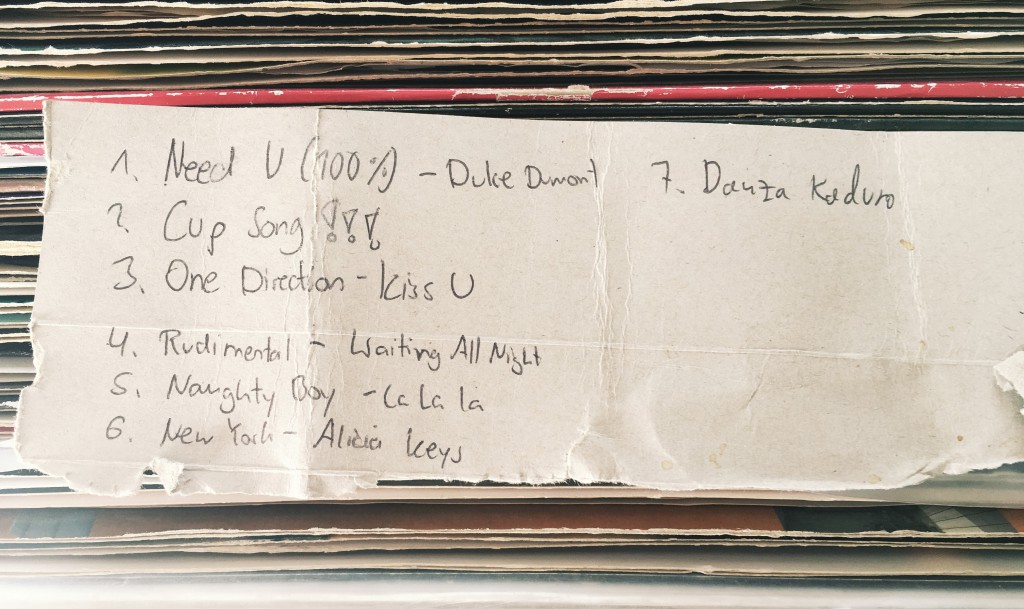 1. Need U (100%) - Duke Dumont
2. Cup Song !!!
3. One Direction - Kiss U
4. Rudimental - Waiting All Night
5. Naughty Boy - La La la
6. New York - Alicia keys
7. Danza Kaduro